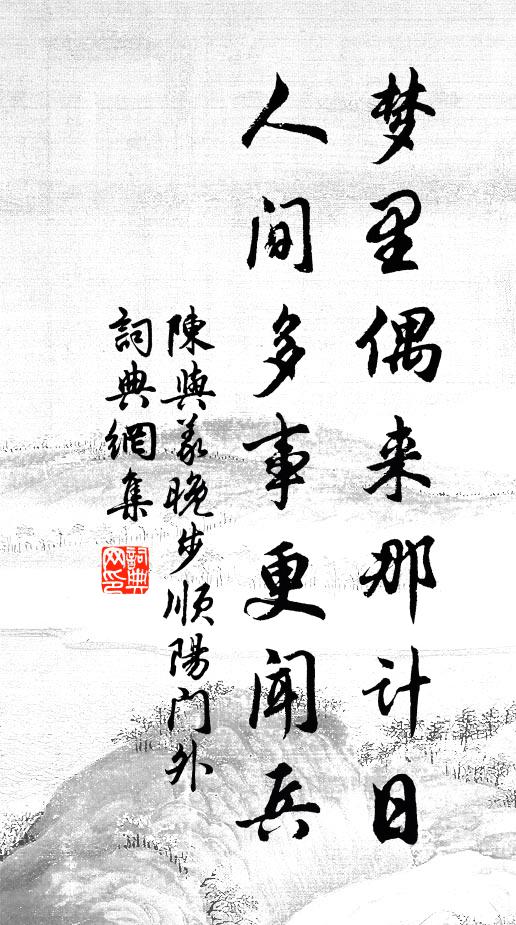 梦里偶来那计日
人间多事更闻兵
陳與義晚步順陽门外
詞典網集
詞典网印